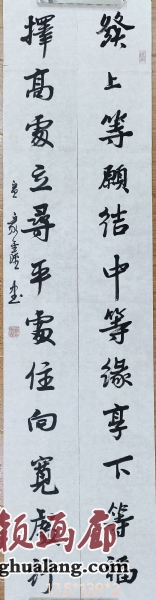 發上等願結中等緣享下等福
擇高處立尋平處住向寬處行
颍画廊
ghualang.com